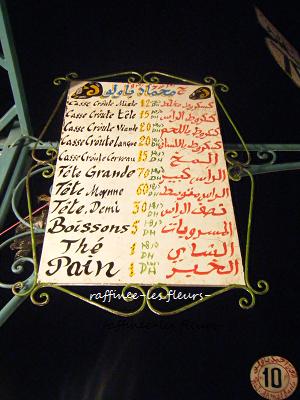 محماد باولو
Casse Croûte Mixte 12 DH كسكروط مخلط
Casse Croûte Tête 15 DH كسكروط الراس
Casse Croûte Viande 20 DH كسكروط باللحم
Casse Croûte Langue 20 DH كسكروط باللسان
Casse Croûte Cerveau 15 DH المخ
Tête Grande 70 DH الراس كبير
Tête Moyenne 60 DH الراس متوسط
Tête Demi 30 DH نصف الراس
Boissons 5 DH المشروبات
Thé 1 DH الشاي
Pain 1 DH الخبز
raffinee-les-fleurs-
10